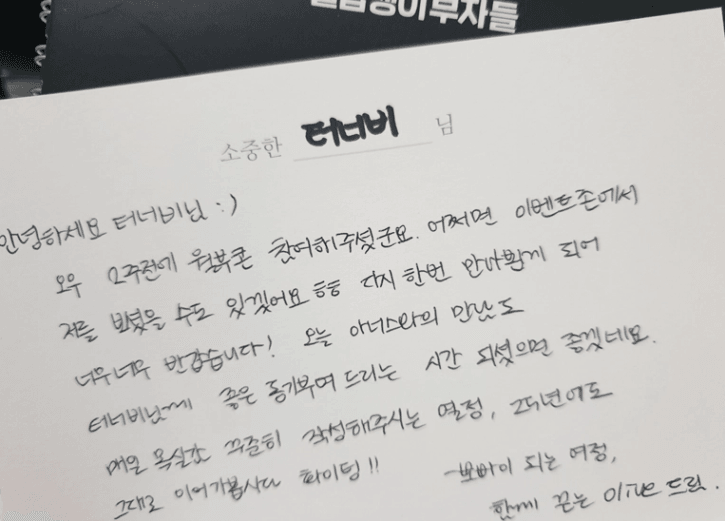 월급쟁이부자들
소중한 터너비 님
안녕하세요 터너비님 :)
오우 2주전에 월부콘 참여해주셨군요. 어쩌면 이벤트존에서
저를 보셨을 수도 있겠어요 ㅎㅎ 다시 한번 만나뵙게 되어
너무너무 반갑습니다! 오늘 아너스와의 만남도
터너비님께 좋은 동기부여 드리는 시간 되셨으면 좋겠네요.
매일 목실감 꾸준히 작성해주시는 열정, 25년에도
그대로 이어가봅시다 화이팅!!
-뽀바이 되는 여정,
함께 끈는 Olive 드림.